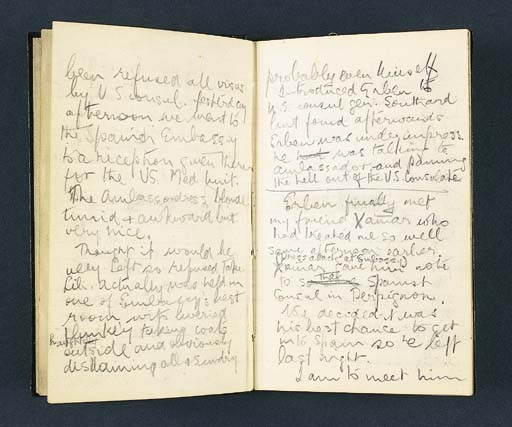 been refused all visas
by US consul. Yesterday
afternoon we went to
the Spanish Embassy
to a reception given there
for the US Med Unit.
The Ambassadress blonde
timid & awkward but
very nice.
Thought it would be
very left so refused take
Lib. Actually was held in
one of Embassy's best
room with liveried
flunkey taking coats
haughty
outside and obviously
disdaining all & sundry
probably even himself
Introduced Erben to
U.S. consul gen. Southard
but found afterwards
Erben was under impress.
he was talking to
ambassador and panning
the hell out of the U.S. Consulate
Erben finally met
my friend Xamar who
had treated me so well
same afternoon earlier.
(press attaché at Embassy)
Xamar gave him note
to Spanish
Consul in Perpignan.
We decided it was
his best chance to get
into Spain so he left
last night.
I am to meet him